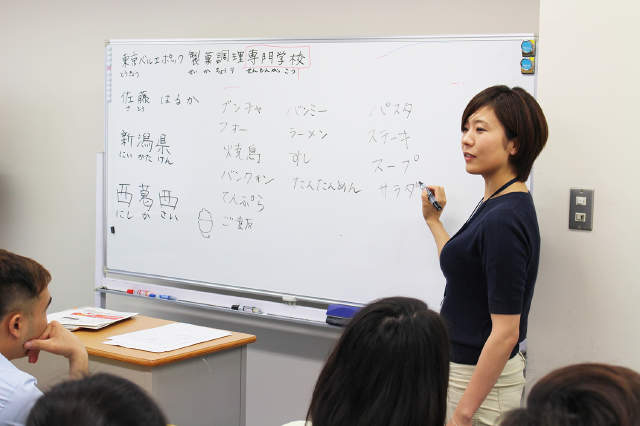 東京ベルエポック 製菓調理専門学校
とうきょう せいかちょうり せんもんがっこう
佐藤 はるか
さとう
新潟県
にいがたけん
西葛西
にしかさい
ブンチャ
フォー
焼鳥
バンクオン
てんぷら
ご飯
バンミー
ラーメン
すし
たんたんめん
パスタ
ステーキ
スープ
サラダ